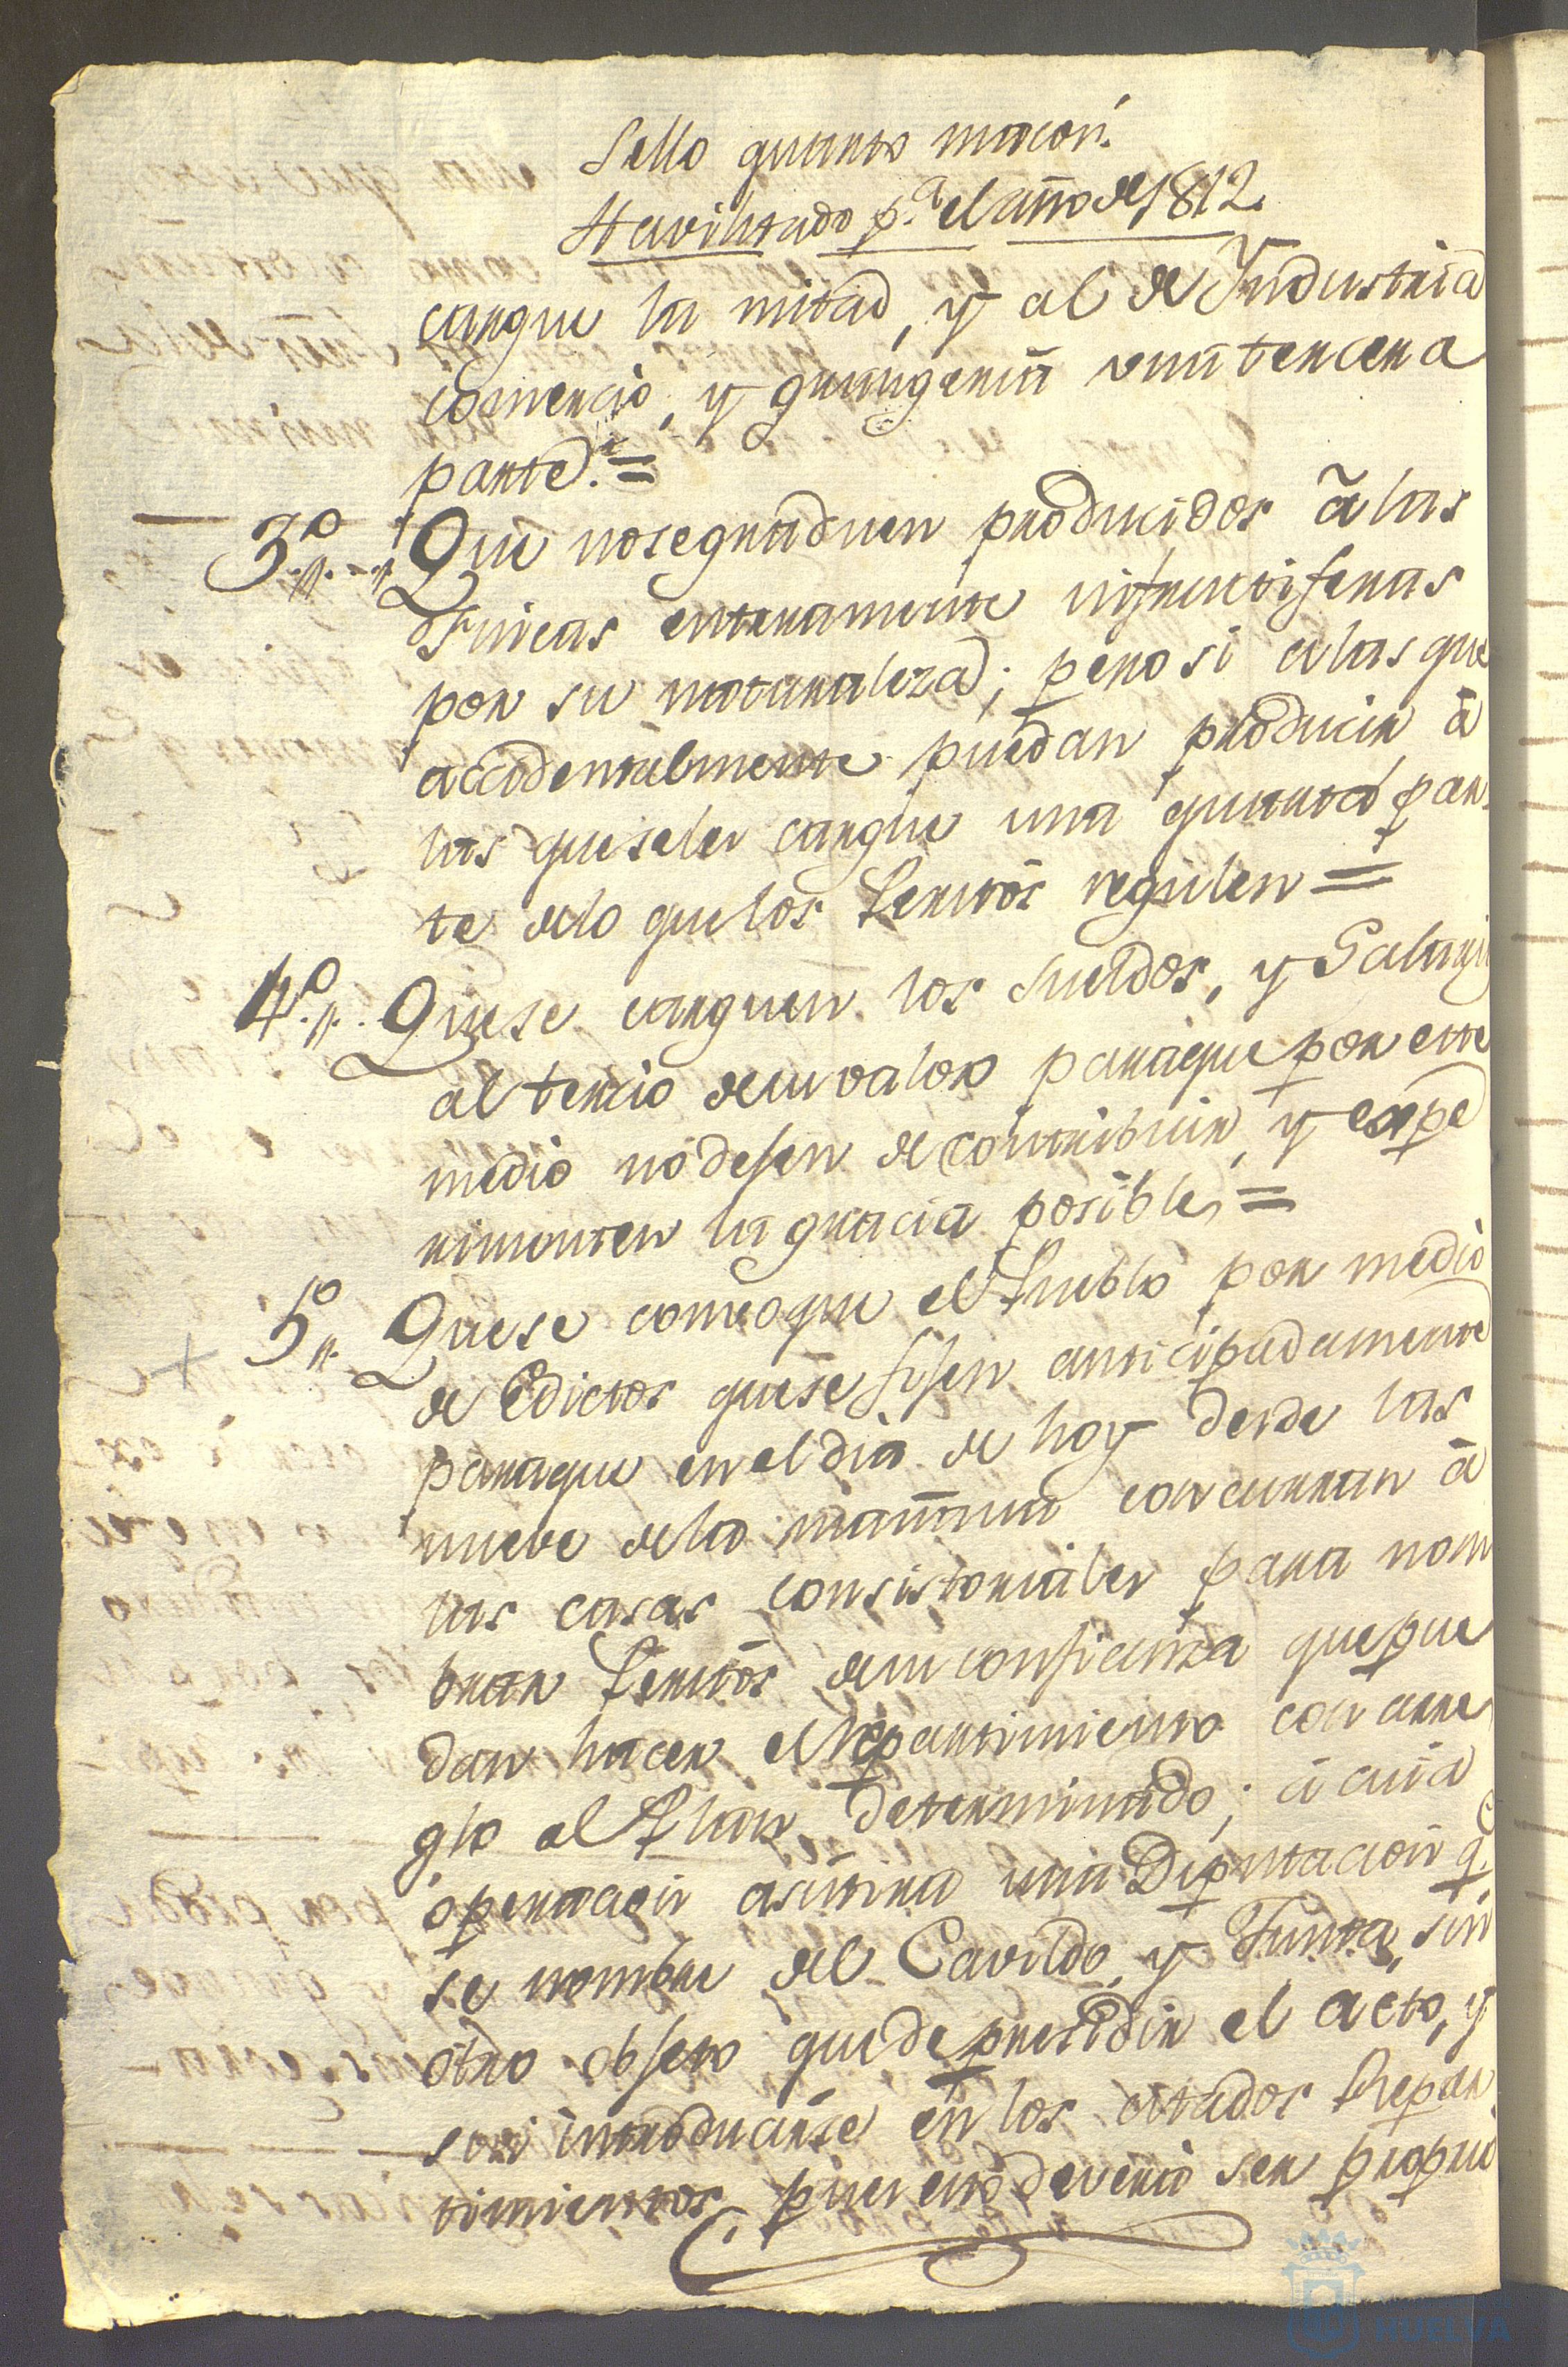 Sello quarto marav.s
Havilitado p.a el año de 1812.
cargue la mitad, y al de Industria
comercio, y grangeria una tercera
parte. =
3.o Que nosegraduen producidos à las
Fincas enteramente infructiferas
por su naturaleza; pero si alas que
accidentalmente puedan producir à
las queseles cargue una quarta par-
te delo quelos Peritos regulen =
4.o Quese carguen los sueldos, y Salarios
al tercio desu valor paraque por este
medio no dejen de contribuir, y expe
rimenten la gracia posible =
5.o Quese convoque el Pueblo por medio
de Edictos quese fijen anticipadamente
paraque enel dia de hoy desde las
nueve dela mañana concurran à
las casas consistoriales para nom
brar Peritos desu confianza quepue
dan hacer el repartimiento con arre
glo al Plan determinado; à cuia
operacion asistira una Diputacion q.e
se nombre del Cavildo, y Junta, sin
otro objeto quede presidir el acto, y
sin introducirse en los citados Repar
timientos, pues esto deveria ser propio
HUELVA